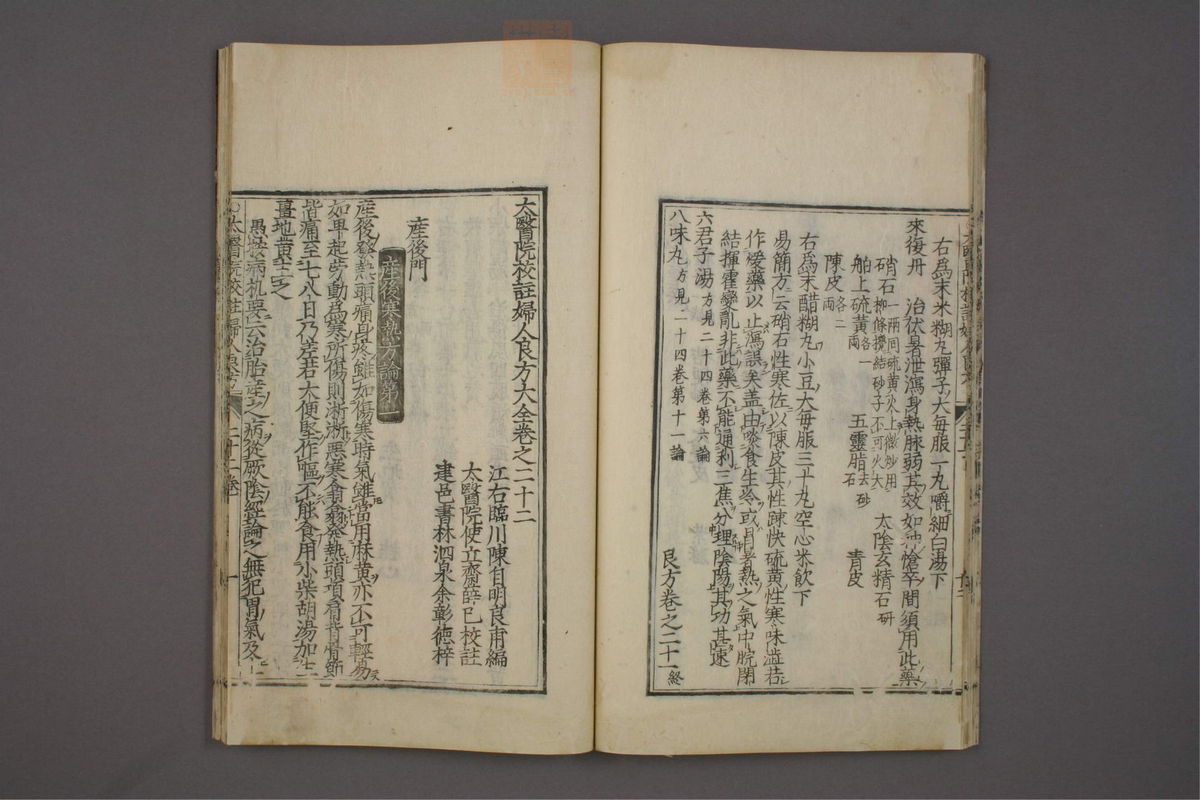 右爲末米糊丸彈子大每服一丸嚼細白湯下
來復丹　治伏暑泄瀉身熱脉弱其效如神愴卒間須用此藥
硝石一兩同硫黃火上微炒用柳條攪結砂子不可火大　太陰玄精石研
舶上硫黃各一兩　五靈脂去砂石　青皮
陳皮各二兩
右爲末醋糊丸小豆大每服三十丸空心米飲下
易簡方云硝石性寒佐以陳皮其性踈快硫黃性寒味澁若
作煖藥以止瀉誤矣盖由啖食生冷或冒暑熱之氣中脘閉
結揮霍變亂非此藥不能通利三焦分理陰陽其功甚速
六君子湯方見二十四卷第六論
八味丸方見二十四卷第十一論
良方卷之二十一終
太醫院校註婦人良方大全卷之二十二
江右臨川陳自明良甫編
太醫院使立齋薛已校註
建邑書林泗泉余彰德梓
産後門
産後寒熱方論第一
産後發熱頭痛身疼雖如傷寒時氣雖當用麻黃亦不可輕易
如早起勞動爲寒所傷則淅淅惡寒翕翕發熱頭項肩背骨節
皆痛至七八日乃差若大便堅作嘔不能食用小柴胡湯加生
薑地黃主之
愚按病机要云治胎産之病從厥陰經論之無犯胃氣及上
太醫院校註婦人良方　二十二卷　一